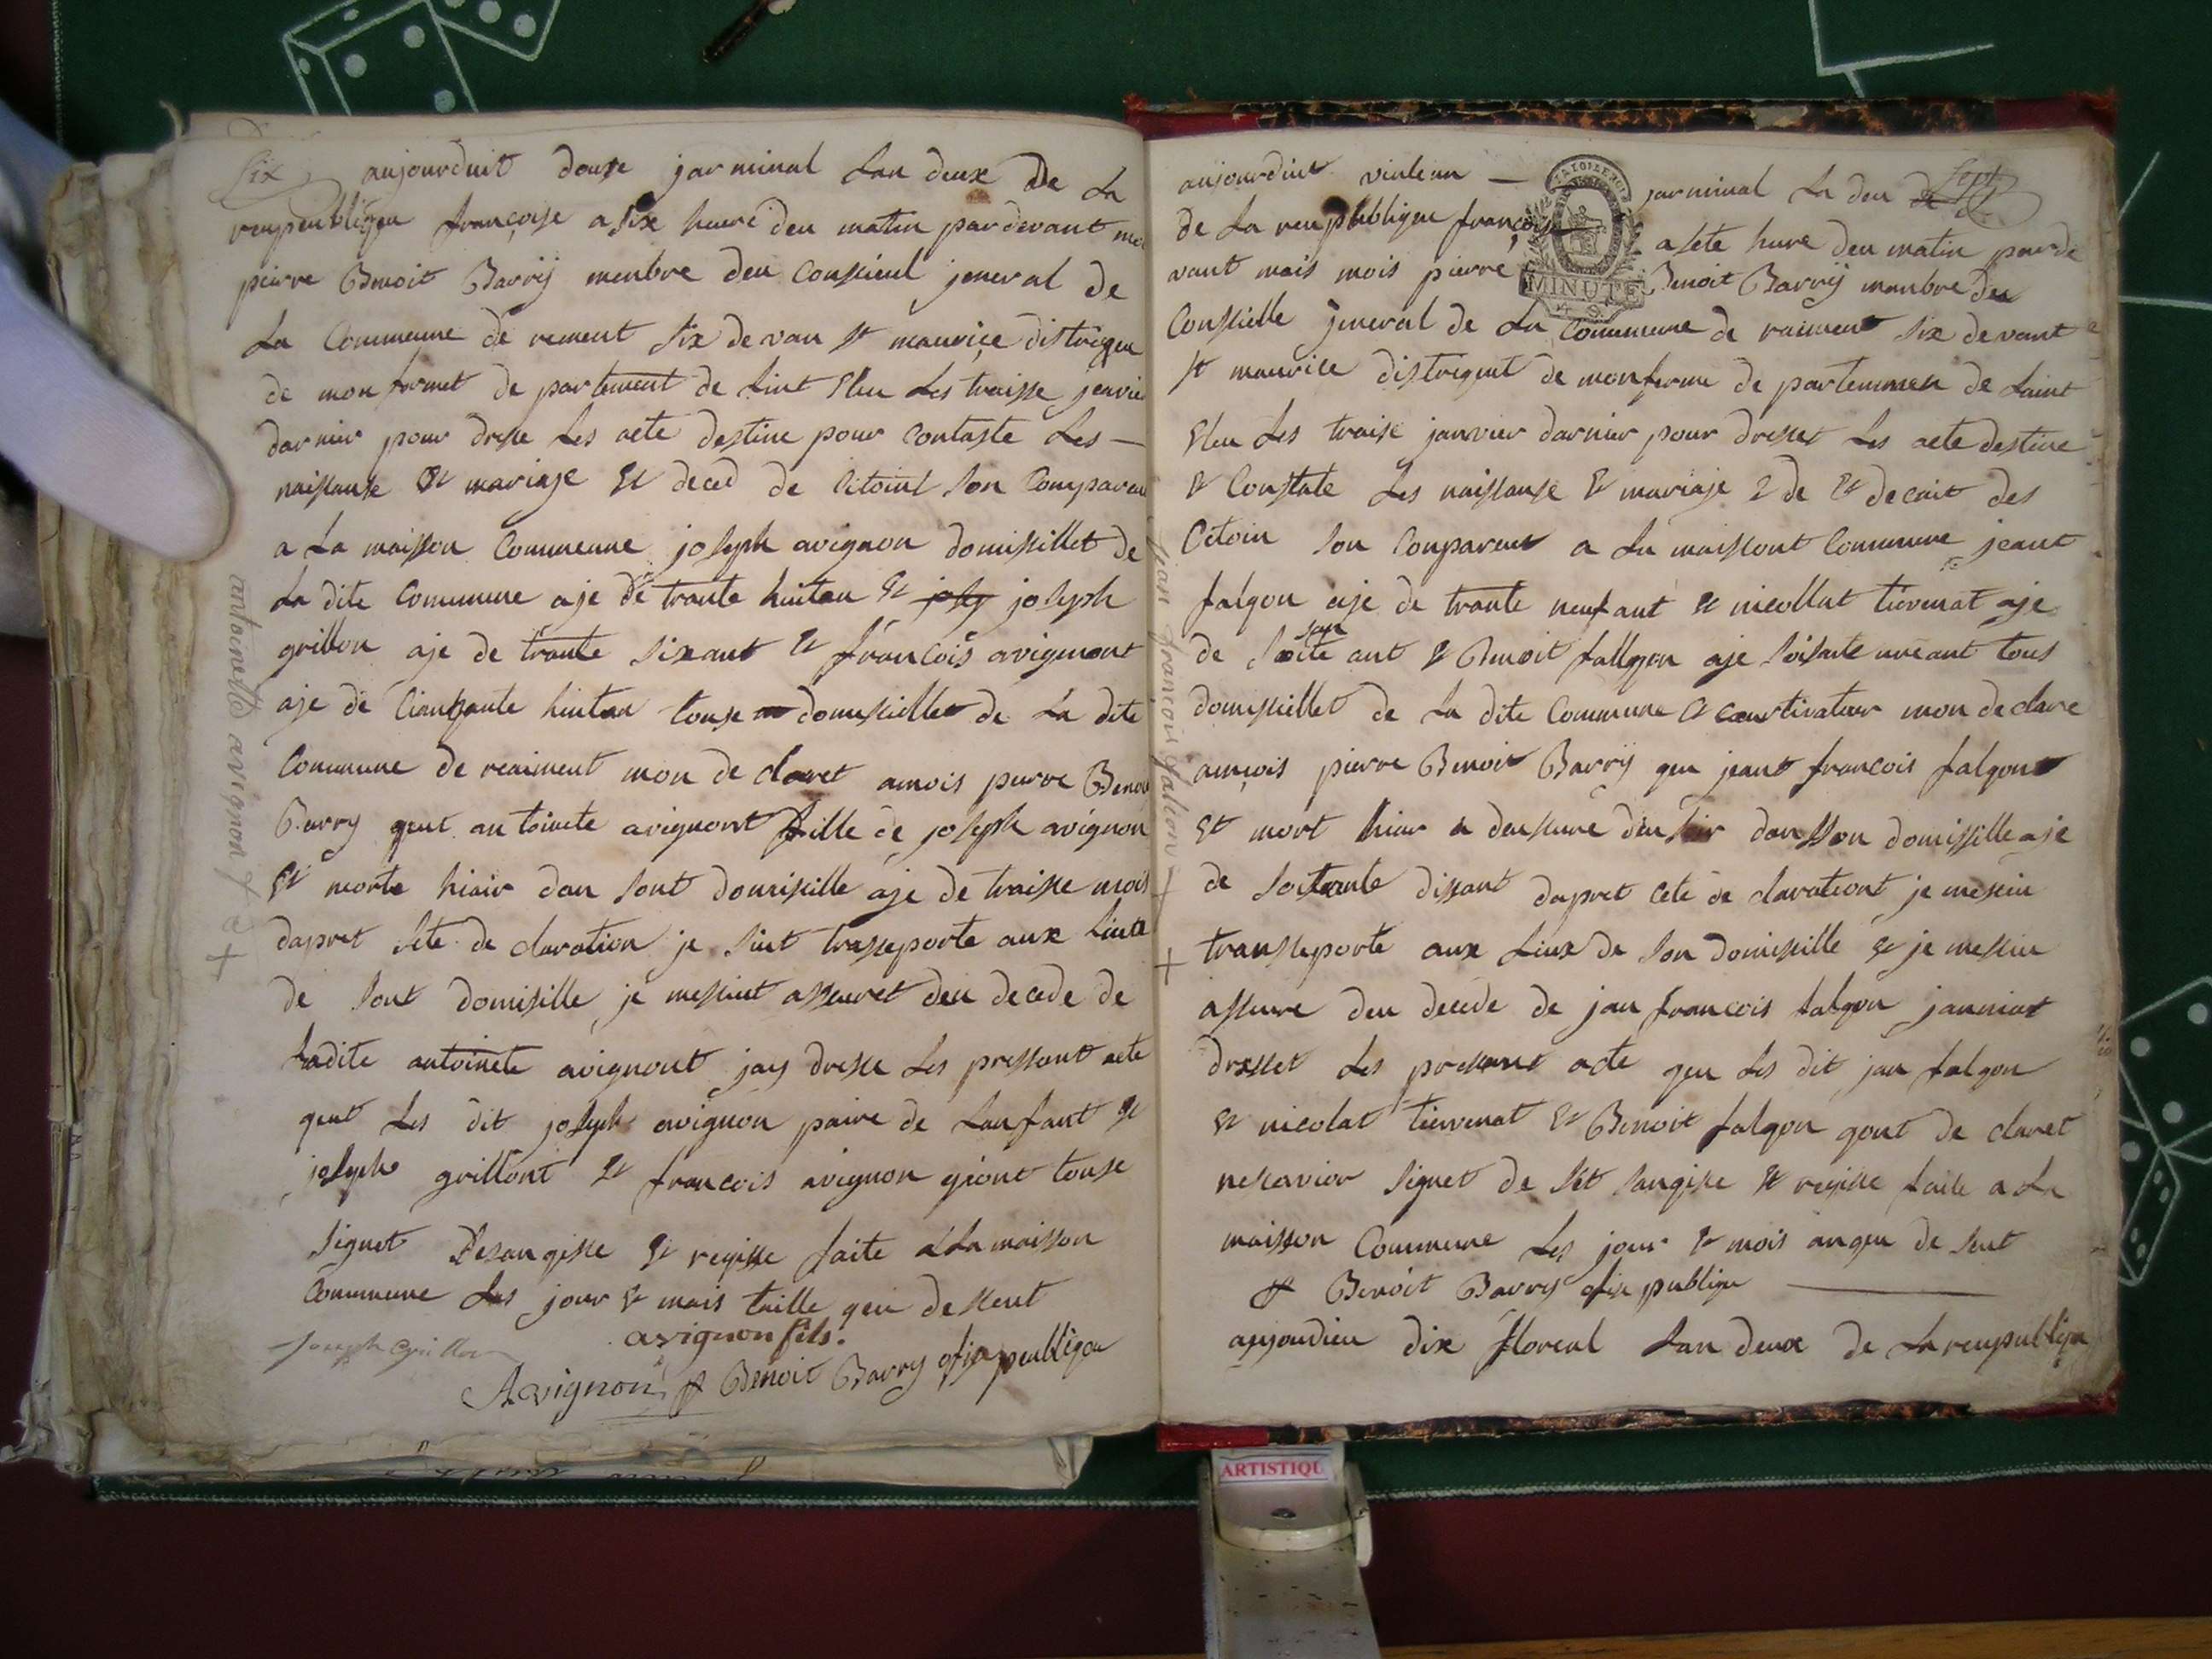 Six aujourduit douze jarminal Lan deux De La
reupeubliqeu françoise a six heure deu matin pardevant moi
pierre Benoit Barrÿ menbre deu Conseieul jeneral de
La Commeune de rement six devan st maurice distrigeu
de monformet de partement de Lint Eleu Les traisse jeavie
darnier pour dresse Les aete destine pour Contaste Les —
naissanse Et mariaje Et deced de Citoint Son Compareu
a La maisson Commeunne joseph avignon domissillet de
La dite Commeune aje de trante huitan Et josep joseph
grillon aje de trante sixant Et françois avignont
aje de Cinquante huitan touse domissielles de La dite
Commune de reaiment mon de claret amois pierre Benoi
Barry geut antoinete avignont fille de joseph avignon
Et morte hiair dan sont domisille aje de traisse mois
dapret sete de claration je suit trasseporte aux Liuex
de sont domisille je messuit asseuret deu decede de
Ladite antoinete avignont jay dresse Les pressant aete
geut Les dit joseph avignon paire de Lanfant Et
joseph grillont Et francois avignon qeont touse
signet Desangisse Et regisse faite a La maisson
Commeune Les jour Et mais taille qeu dessent
avignon fils.
Joseph Grillon
Avignon P Benoit Barry ofis peubliqeu
antoinette avignon f
Sept
aujourduit vinleun — jarminal La deu de
de La reupbublique françoise a sete hure deu matin parde
vant mais mois pierre Benoit Barrÿ manbre deu
MINUTE
Conssielle jeneral de La Commeune de raiment six devant
st maurice distregeut de monferme de partemmen de Laint
Eleu Les traise janvier darnier pour dresser Les aete destine
Et Constate Les naissanse Et mariaje 2 de Et decait des
Citoin son Conpareut a La maissont Commune jeant
falgon aje de trante neuf ant Et nicollat tievenat aje
de soite san ant Et Benoit fallgon aje soisante uneant tous
domissiellet de La dite Commune Et Courtivateur mon declare
amçois pierre Benoit Barrÿ qeu jeant francois falgont
Et mort hiar a deusseure deu soir dansson domissille aje
de soitante dissant dapret Cete de clarationt je messiu
transseporte aux Lieux de son domissille Et je messiu
assure deu decede de jan francois falgon janmiat
dresset Les pressant acte qeu Les dit jan falgon
Et nicolat tievenat Et Benoit falgon qont de claret
nesavior signet de set sangisse Et regisse faite a La
maisson Commeune Les jour Et mois angeu de sent
P Benoit Barry ofis publiqu
jean francois fallon
aujoudieu dix floreal Lan deux de La reupubliqu
ARTISTIQU